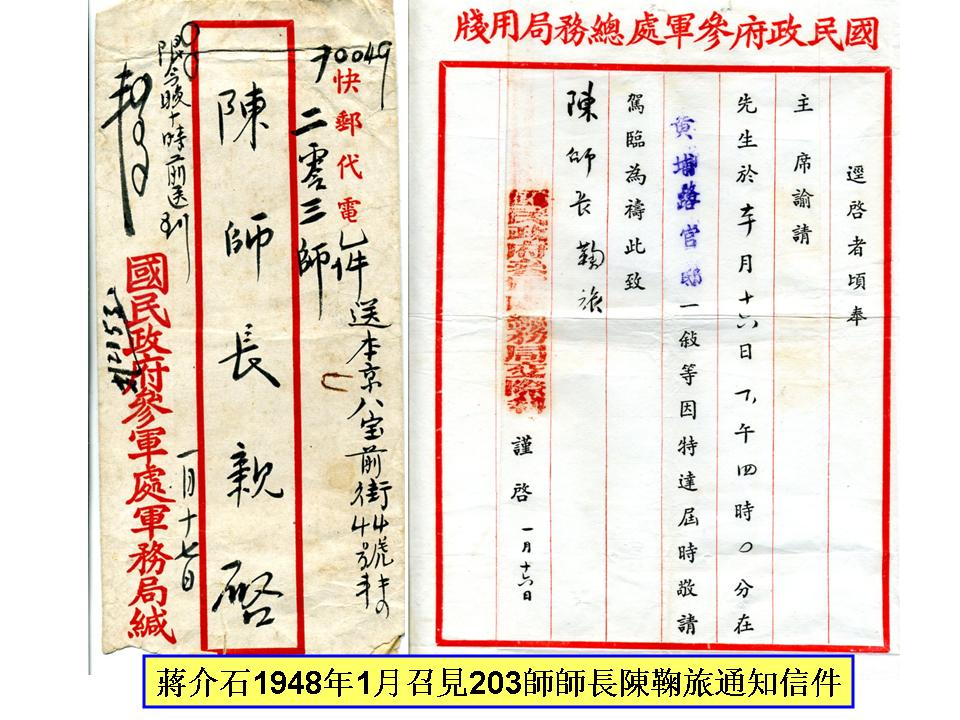 國民政府參軍處總務局用牋
逕啓者頃奉
主席諭請
先生於本月十六日下午四時〇分在
黃埔路官邸一敍等因特達屆時敬請
駕臨為禱此致
陳師長鞠旅
謹啓 一月十六日
70049
快郵代電 件
二零三師
送本京八宝前街44號
陳師長親啓
限今晚十時前送到
國民政府參軍處軍務局緘
一月十七日
蔣介石1948年1月召見203師師長陳鞠旅通知信件